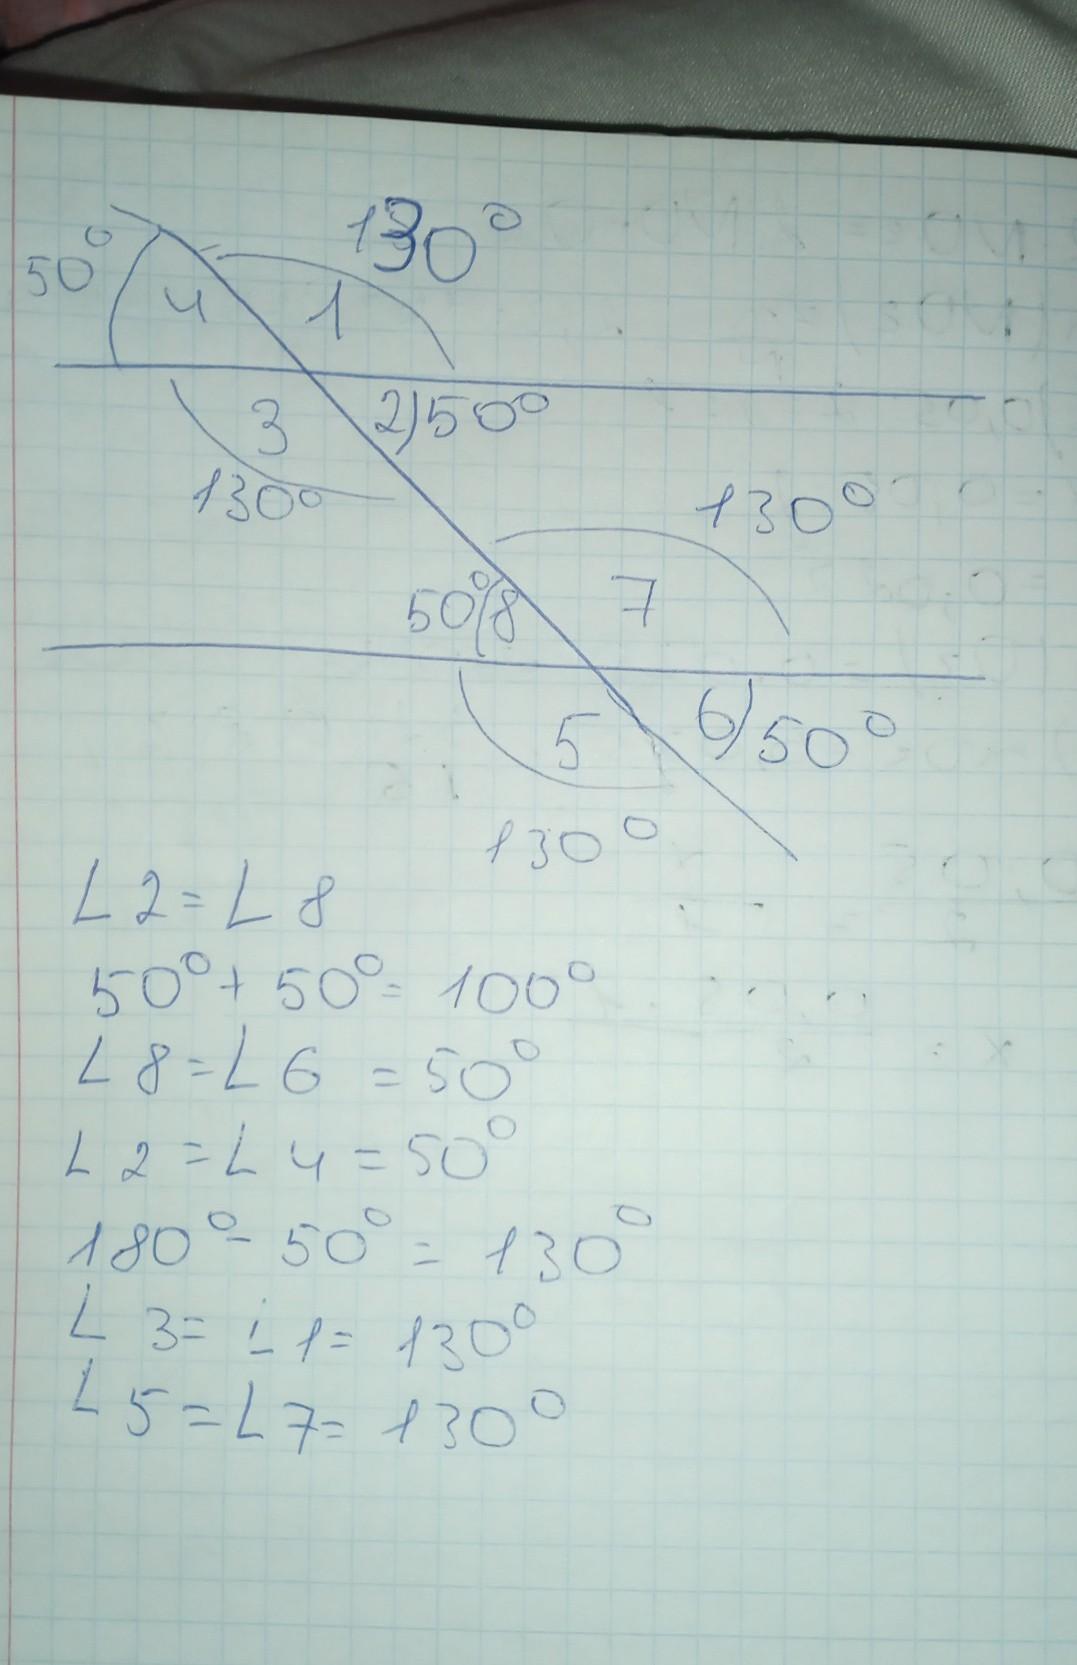 130°
50°
4
1
3
2) 50°
130°
130°
50° 8
7
5
6) 50°
130°
∠2=∠8
50°+50°=100°
∠8=∠6=50°
∠2=∠4=50°
180°-50°=130°
∠3=∠1=130°
∠5=∠7=130°